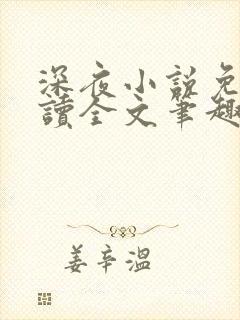 深夜小说免
讀全文筆趣
姜辛溫